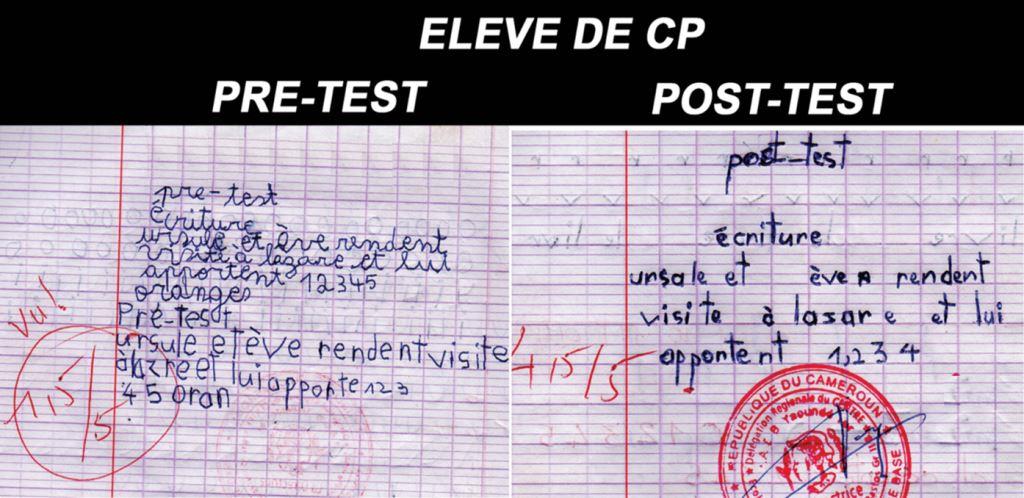 ELEVE DE CP
PRE-TEST
pre-test
écriture
ursule et ève rendent
visite à lazare et lui
apportent 12345
oranges
Pré-test
ursule et ève rendent visite
et lui apporte 123
45 oran
vu!
1,5/5
POST-TEST
post-test
écniture
ursale et ève rendent
visite à lasare et lui
oppontent 1,234
4,5/5
REPUBLIQUE DU CAMEROUN
Délégation Régionale du CENTRE
Yaoundé
BASE